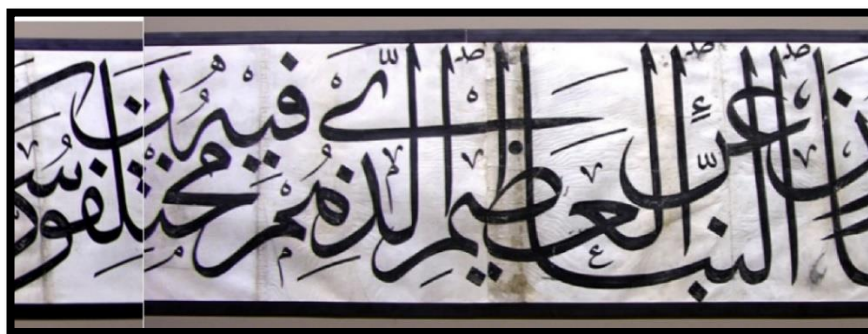 عن النبإ العظيم الذي هم فيه مختلفون